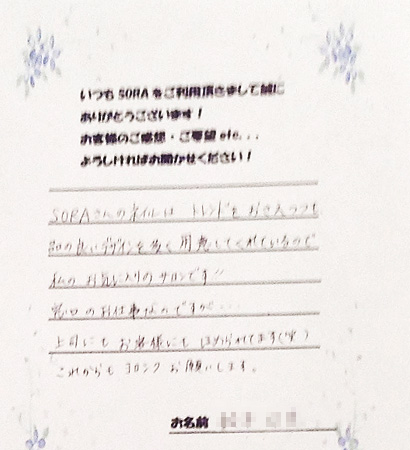 いつも SORA をご利用頂きまして誠に
ありがとうございます！
お客様のご感想・ご要望 etc...
よろしければお聞かせください！
SORAさんのネイルは トレンドを おさえつつも
品の良いデザインを多く用意してくれているので
私の お気に入りのサロンです!!
窓口のお仕事なのですが....
上司にも お客様にも ほめられてます(笑)
これからも ヨロシク お願いします。
お名前